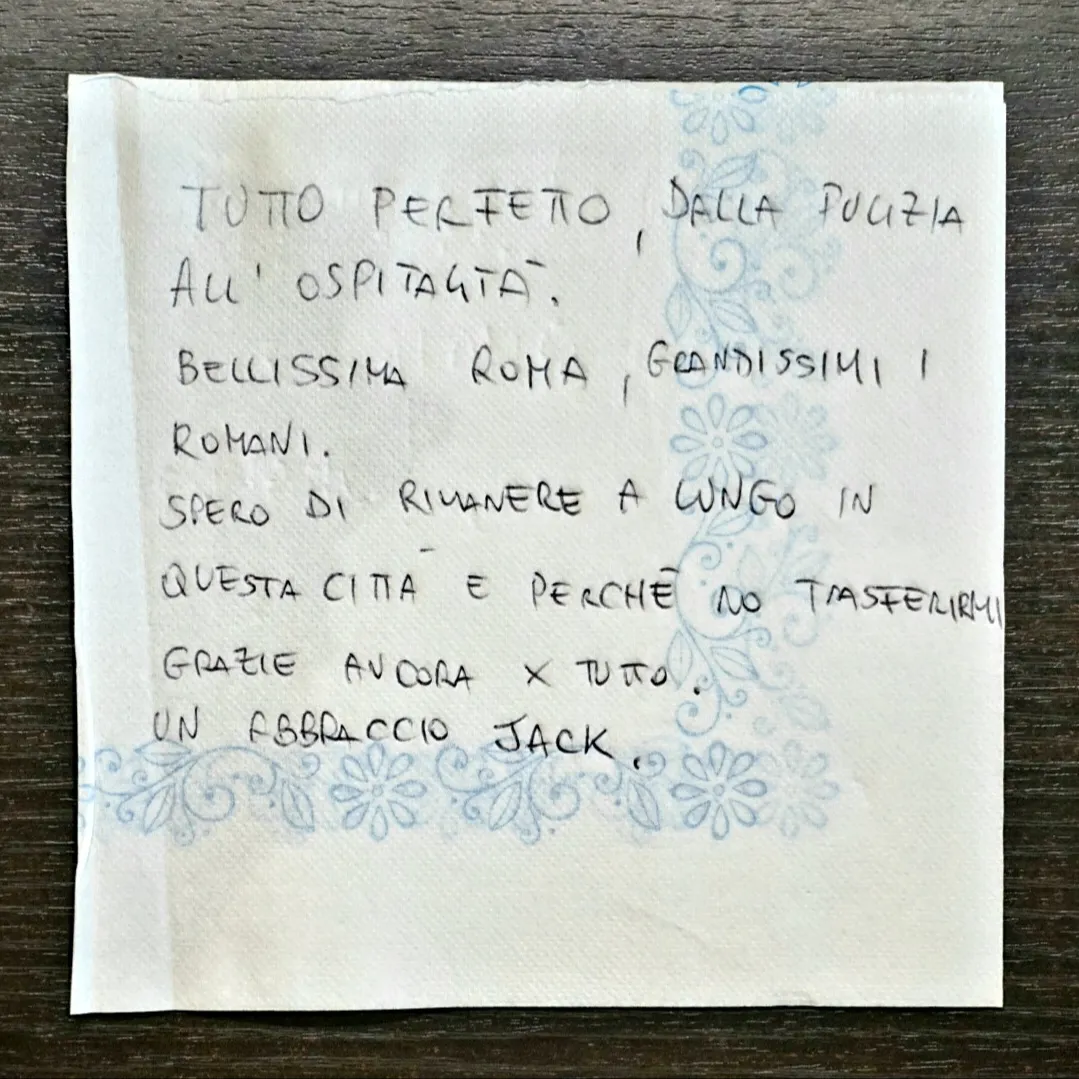 TUTTO PERFETTO, DALLA PULIZIA
ALL' OSPITALITÀ.
BELLISSIMA ROMA, GRANDISSIMI I
ROMANI.
SPERO DI RIMANERE A LUNGO IN
QUESTA CITTÀ E PERCHÈ NO TRASFERIRMI
GRAZIE ANCORA X TUTTO.
UN ABBRACCIO JACK.